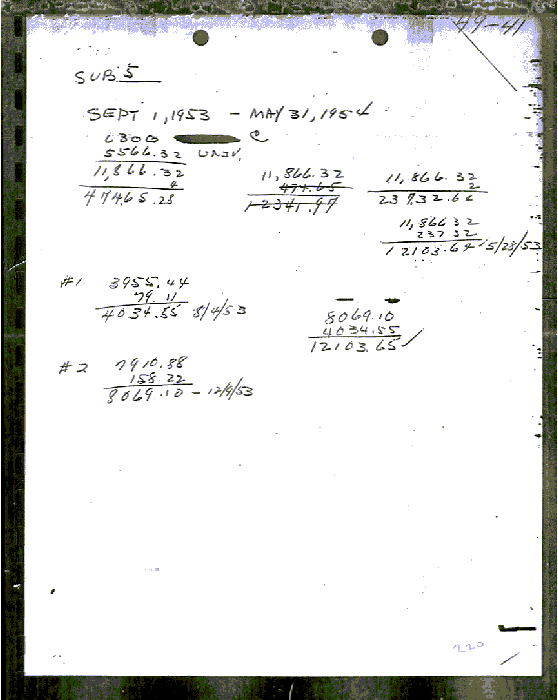 49-41
SUB 5
SEPT 1, 1953 - MAY 31, 1954
6300 C
5566.32 UNIV.
11,866.32
4
47465.28
11,866.32
474.65
12341.97
11,866.32
2
23732.64
11,866 32
237 32
12103.64 5/28/53
#1 3955.44
79.11
4034.55 8/4/53
8069.10
4034.55
12103.65 ✓
#2 7910.88
158.22
8069.10 - 12/9/53
220